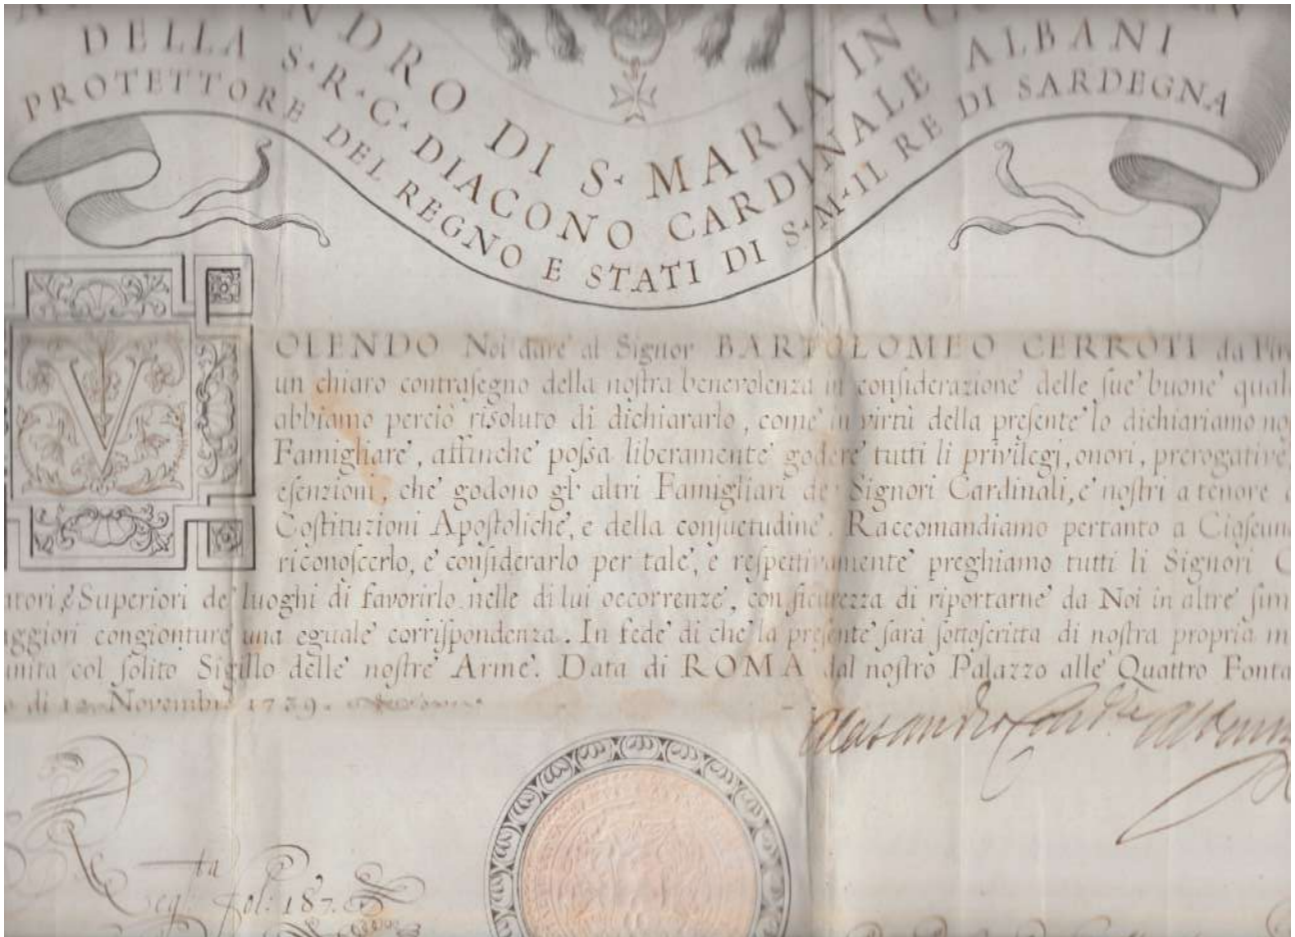 ANDRO DI S. MARIA IN
DELLA S. R. C. DIACONO CARDINALE ALBANI
PROTETTORE DEL REGNO E STATI DI S. M. IL RE DI SARDEGNA
VOLENDO Noi dare al Signor BARTOLOMEO CERROTI da Fire
un chiaro contraſegno della noſtra benevolenza in conſiderazione delle ſue buone qual
abbiamo perciò riſoluto di dichiararlo, come in virtù della preſente lo dichiariamo no
Famigliare, affinche poſsa liberamente godere tutti li privilegj, onori, prerogative,
eſenzioni, che godono gl' altri Famigliari de' Signori Cardinali, e noſtri a tenore
Coſtituzioni Apoſtoliche, e della conſuetudine. Raccomandiamo pertanto a Ciaſcun
riconoſcerlo, e conſiderarlo per tale, e reſpettivamente preghiamo tutti li Signori C
atori, e Superiori de' luoghi di favorirlo nelle di lui occorrenze, con ſicurezza di riportarne da Noi in altre ſim
aggiori congionture una eguale corriſpondenza. In fede di che la preſente ſarà ſottoſcritta di noſtra propria m
unita col ſolito Sigillo delle noſtre Arme. Data di ROMA dal noſtro Palazzo alle Quattro Fonta
o di 12 Novembre 1739.
Alesandro Card.le Albani
Reg.ta fol: 187.